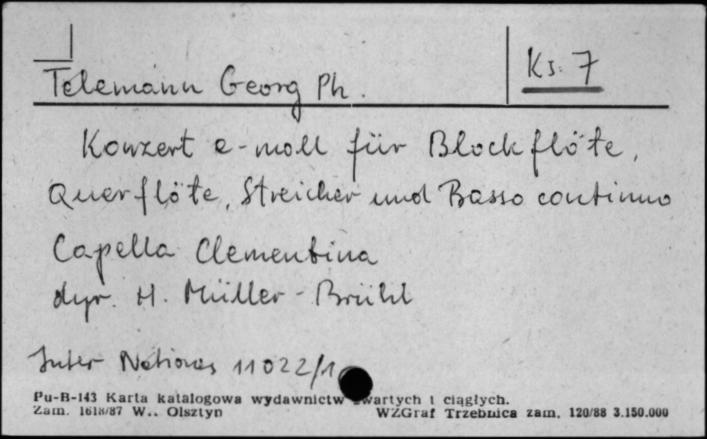 Telemann Georg Ph.
Ks. 7
Konzert e-moll für Blockflöte,
Querflöte, Streicher und Basso continuo
Capella Clementina
dyr. H. Müller-Brühl
Inter Nationes 11022/1
Pu-B-143 Karta katalogowa wydawnictw zwartych i ciągłych.
Zam. 1618/87 W.. Olsztyn WZGraf Trzebnica zam. 120/88 3.150.000